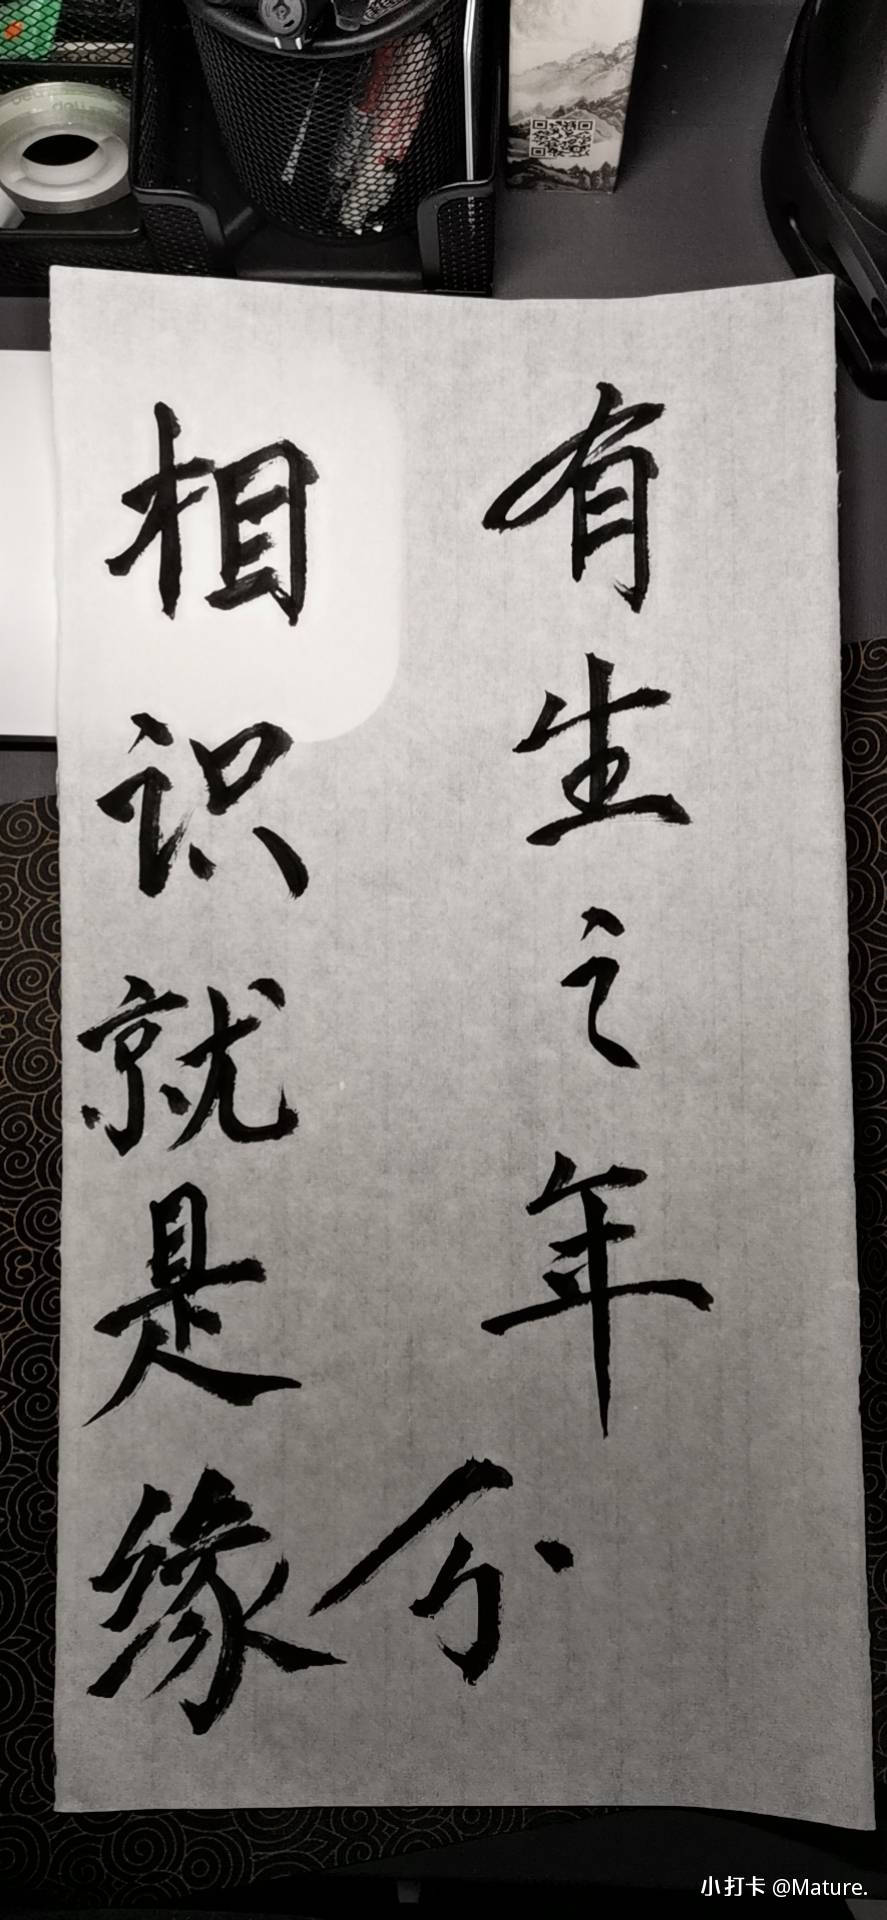 有生之年
相识就是缘分
deli
deli
小打卡 @Mature.